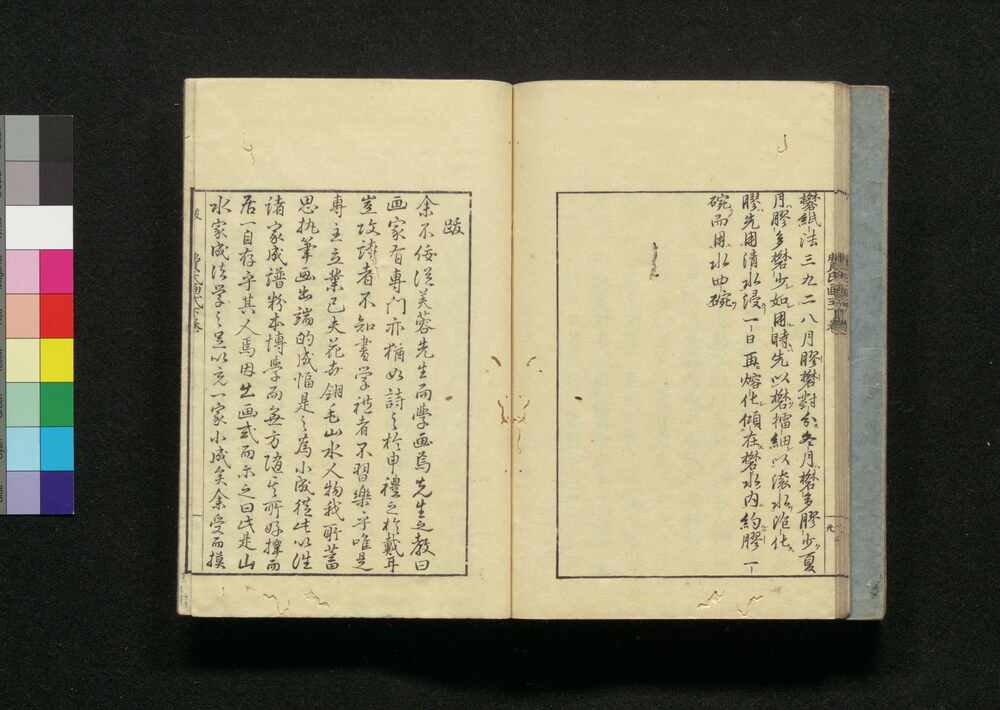 礬紙法三九二八月膠礬對分冬月礬多膠少夏
月膠多礬少如用時先以礬擂細以滚水泡化
膠先用清水浸一日再熔化傾在礬水内約膠一
碗而用水四碗
跋
余不佞從芙蓉先生而學画焉先生之教曰
画家有專門亦猶如詩之於申禮之於戴耳
豈攻詩者不知書学禮者不習樂乎唯是
專主立業已夫花卉翎毛山水人物我所蓄
思執筆画出端的成幅是之為小成從此以往
諸家成譜粉本博學而無方随其所好擇而
居一自存乎其人焉因出画式而示之曰此是山
水家成法学之足以充一家小成矣余受而摸